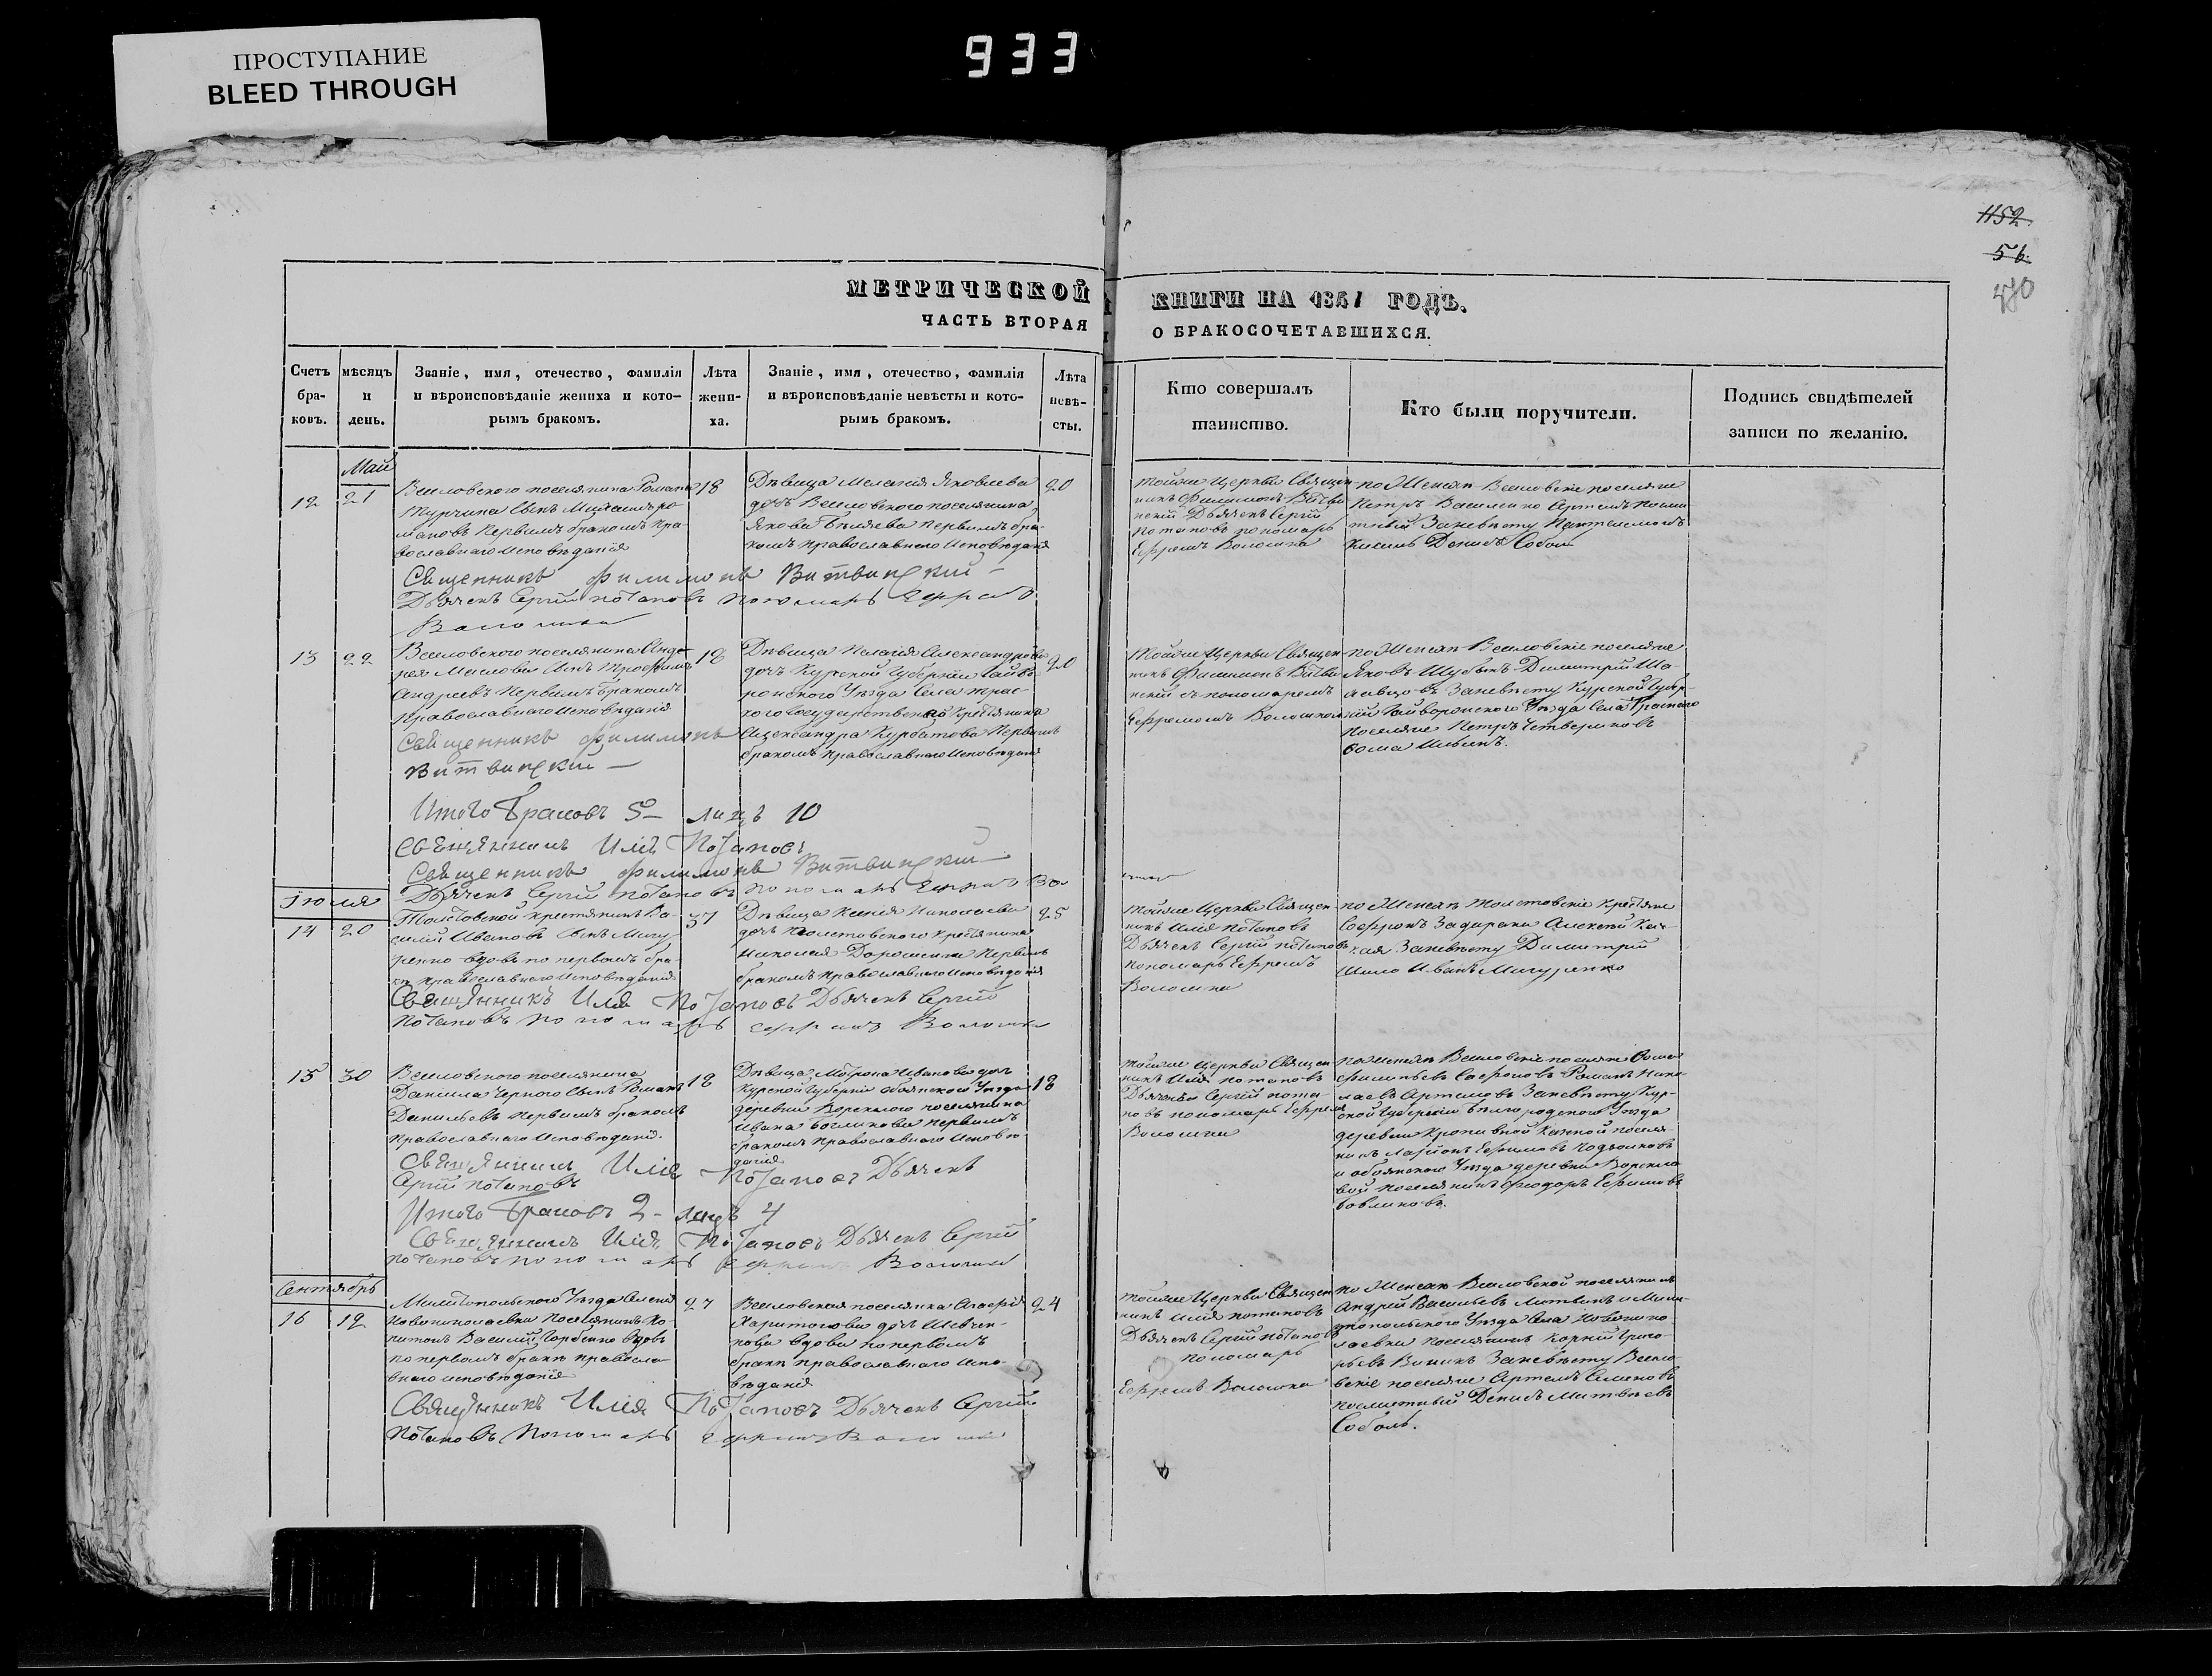 ПРОСТУПАНИЕ
BLEED THROUGH
933
1152
56.
МЕТРИЧЕСКОЙ КНИГИ НА 1851 ГОДЪ.
ЧАСТЬ ВТОРАЯ О БРАКОСОЧЕТАВШИХСЯ.
Счетъ браковъ.
мѣсяцъ и день.
Званіе, имя, отечество, фамилія
и вѣроисповѣданіе жениха и кото-
рымъ бракомъ.
Лѣта
жени-
ха.
Званіе, имя, отечество, фамилія
и вѣроисповѣданіе невѣсты и кото-
рымъ бракомъ.
Лѣта
невѣ-
сты.
Кто совершалъ
таинство.
Кто были поручители.
Подпись свидѣтелей
записи по желанію.
Май
12
21
Веселовского поселянина Романа
Турчина сынъ Михаилъ Ро-
мановъ первымъ бракомъ пра-
вославнаго исповѣданія
18
Дѣвица Мелания Яковлева
дочь Веселовского поселянина
Якова Бѣляева первымъ бра-
комъ православнаго исповѣданія
20
Тойже Церкви Священ-
никъ Филимонъ Витви
нскій Дьячекъ Сергій
Потаповъ пономарь
Ефремъ Волошка
по Женихѣ Веселовскіе поселяне
Петръ Василенко Артемъ
за невѣсту Пантелимонъ
Денисъ Соболь
Священникъ Филимонъ Витвицкий
Дьячекъ Сергій Потаповъ пономарь Ефремъ
Волошка
13
22
Веселовского поселянина Анд-
рея Маслова сынъ Трофимъ
Андреевъ первымъ бракомъ
православнаго исповѣданія
18
Дѣвица Пелагія Александрова
дочь Курской Губерніи Гайво
ронского Уѣзда Села
государственнаго крестьянина
Александра Курбатова первымъ
бракомъ православнаго исповѣданія
20
Тойже Церкви Священ-
никъ Филимонъ Витви
нскій съ пономаремъ
Ефремомъ Волошкою
по Женихѣ Веселовскіе поселяне
Яковъ Шубинъ Димитрій
за невѣсту Курской Губер-
ніи Гайворонского Уѣзда Села
поселяне Петръ Четвериковъ
Фома Ильинъ.
Священникъ Филимонъ
Витвицкий
Итого Браковъ 5 – лицъ 10
Священникъ Илія Потаповъ
Священникъ Филимонъ Витвицкий
Дьячекъ Сергій Потаповъ пономарь Ефремъ Во
Іюля
14
20
Толстовской крестьянинъ Ва-
силій Ивановъ сынъ Мигу
ренко вдовъ по первомъ бра-
кѣ православнаго исповѣданія
37
Дѣвица Ксенія Николаева
дочь Толстовского крестьянина
Николая Дорошенки первымъ
бракомъ православнаго исповѣданія
25
Тойже Церкви Священ-
никъ Илія Потаповъ
Дьячекъ Сергій Потаповъ
пономарь Ефремъ
Волошка
по Женихѣ Толстовскіе крестьяне
Софронъ Задирака Алексѣй
за невѣсту Димитрій
Шило Иванъ Мигуренко
Священникъ Илія Потаповъ Дьячекъ Сергій
Потаповъ пономарь Ефремъ Волошка
15
30
Веселовского поселянина
Данила Черного сынъ Романъ
Даниловъ первымъ бракомъ
православнаго исповѣданія.
18
Дѣвица Матрона Иванова дочь
Курской Губерніи Обоянского Уѣзда
деревни поселянина
Ивана первымъ
бракомъ православнаго исповѣ
данія
18
Тойже Церкви Священ
никъ Илія Потаповъ
Дьячекъ Сергій Пота-
повъ пономарь Ефремъ
Волошка
по Женихѣ Веселовскіе поселяне
Романъ Нико-
лаевъ Артемовъ за невѣсту Кур-
ской Губерніи Бѣлгородского Уѣзда
деревни поселя-
нинъ Ларіонъ Ефимовъ
и Обоянского Уѣзда деревни
поселянинъ Феодоръ Ефимовъ
Священникъ Илія Потаповъ Дьячекъ
Сергій Потаповъ
Итого Браковъ 2 – лицъ 4
Священникъ Илія Потаповъ Дьячекъ Сергій
Потаповъ пономарь Ефремъ Волошка
Сентябрь
16
12
Мелитопольского Уѣзда Селенія
Новониколаевки поселянинъ
Василій Горбенко вдовъ
по первомъ бракѣ правосла-
внаго исповѣданія
27
Веселовская поселянка Агафія
Харитонова дочь Шевчен-
кова вдова по первомъ
бракѣ православнаго испо-
вѣданія
24
Тойже Церкви Священ
никъ Илія Потаповъ
Дьячекъ Сергій Потаповъ
пономарь
Ефремъ Волошка
по Женихѣ Веселовской поселянинъ
Андрей Васильевъ и Мели-
топольского Уѣзда Села Новонико-
лаевки поселянинъ Корній Григо-
рьевъ за невѣсту Весело-
вскіе поселяне Артемъ Семеновъ
Денисъ Матвѣевъ
Соболь.
Священникъ Илія Потаповъ Дьячекъ Сергій
Потаповъ пономарь Ефремъ Волошка